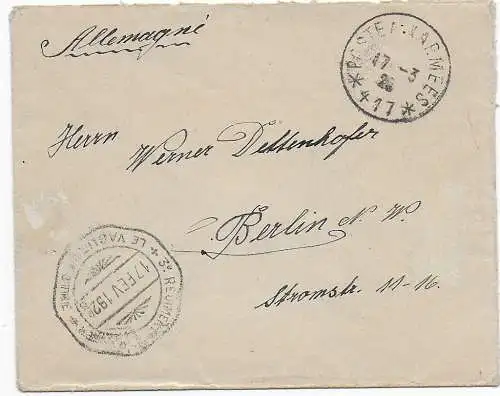 Allemagne
POSTE AUX ARMEES
17-3
26
* 417 *
Herrn
Werner Dettenhofer
Berlin N. W.
Stromstr. 11-16
3e REGIMENT
LE VAGUEMESTRE
17 FEV 192